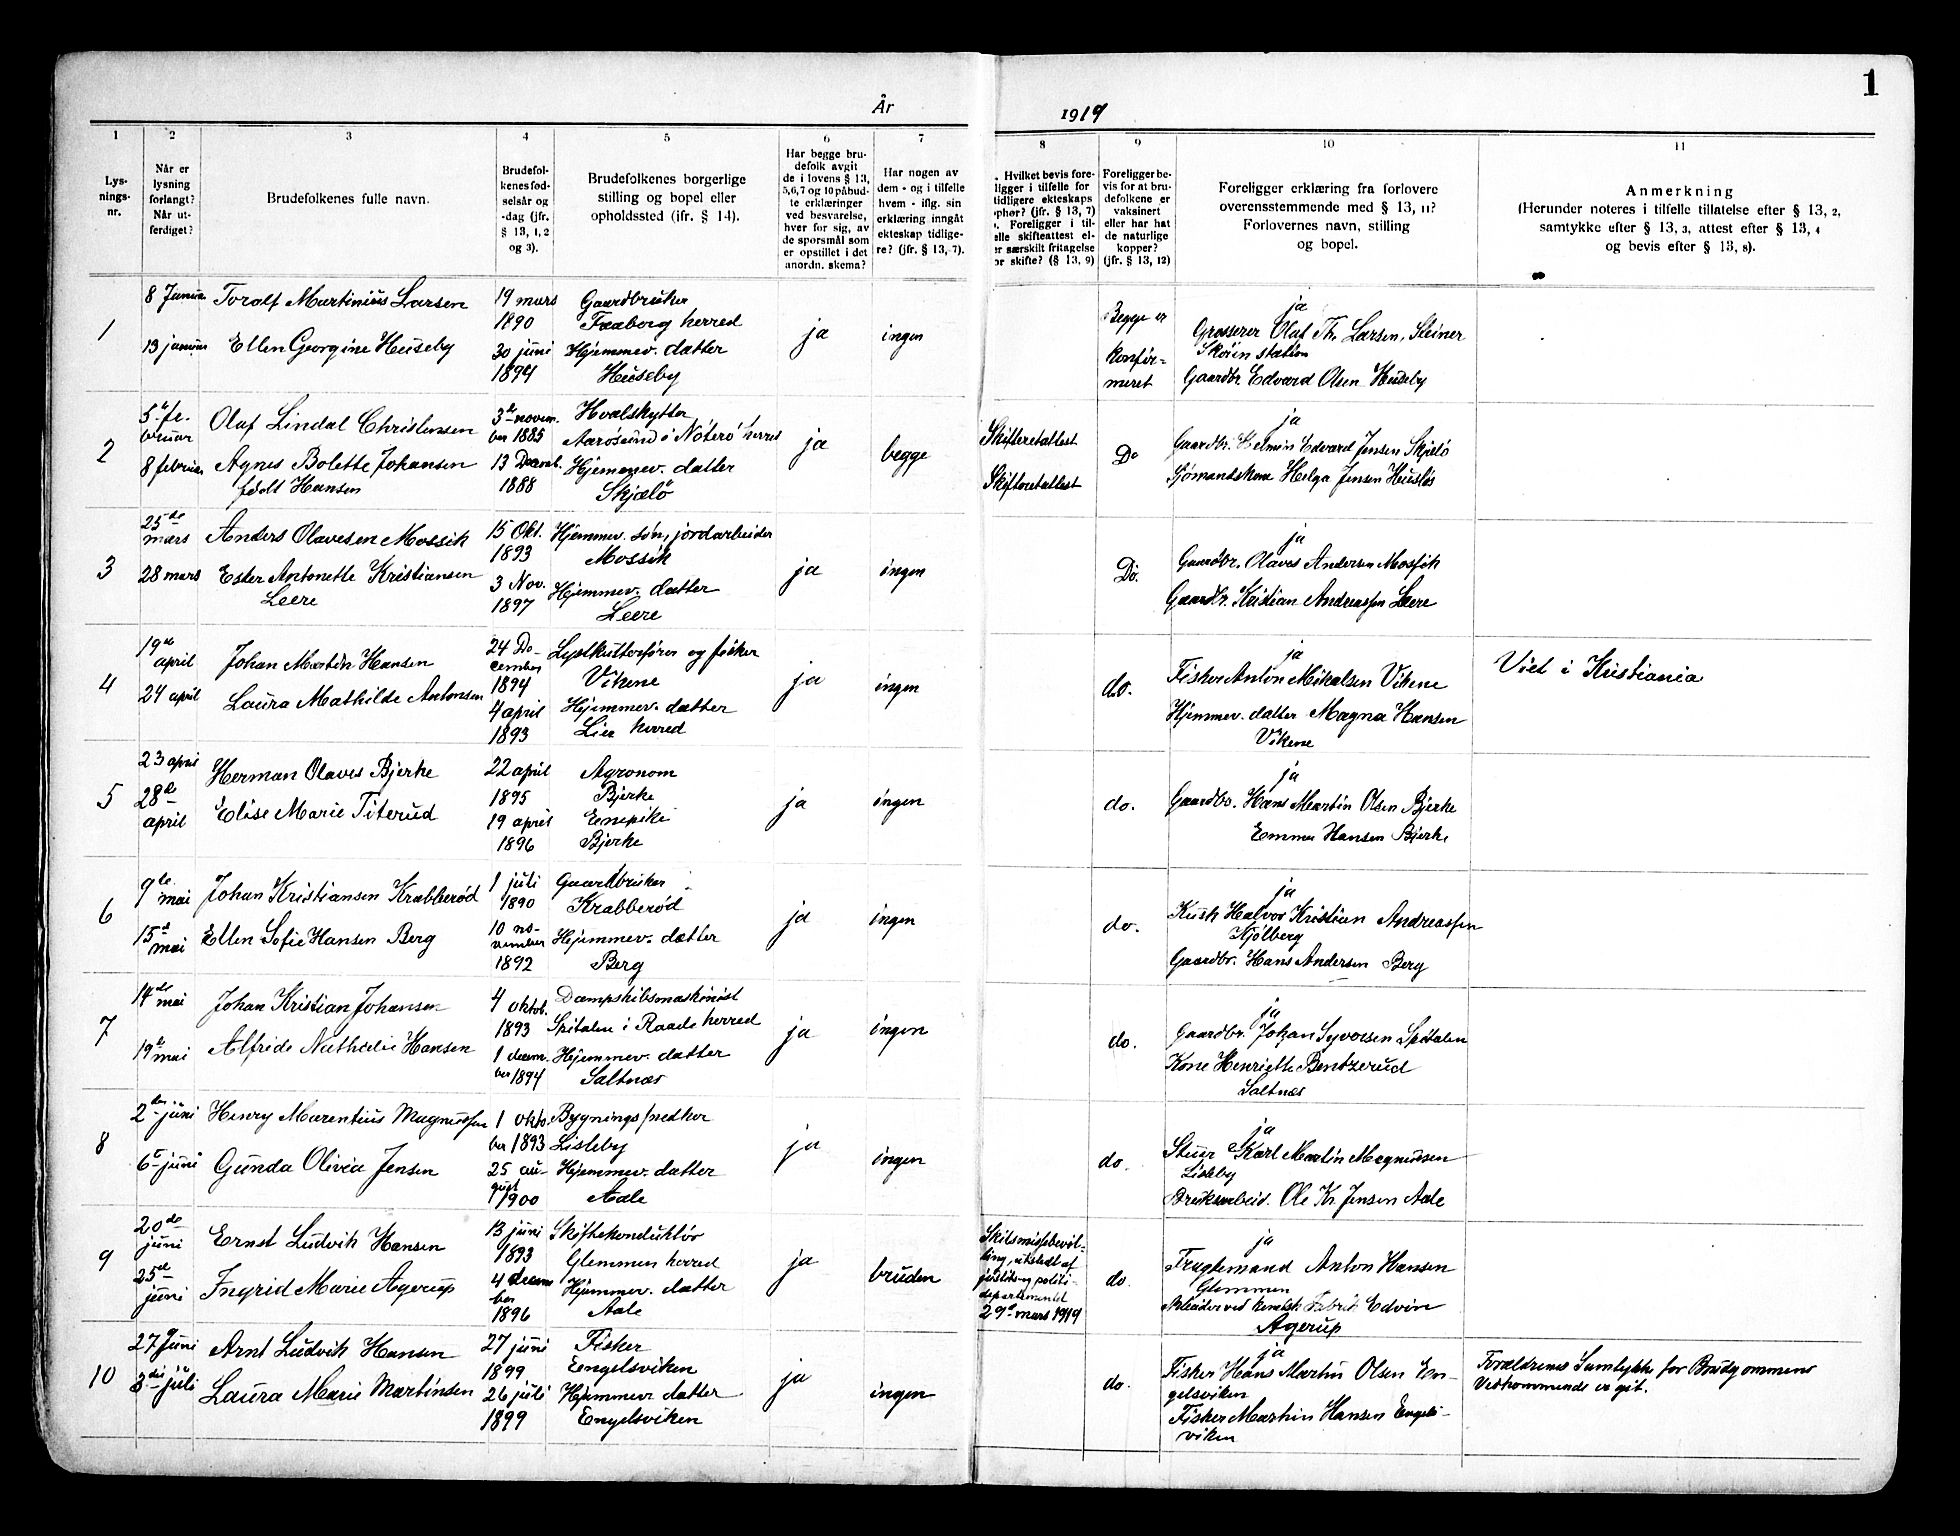 1
År 1919
1 2 3 4 5 6 7 8 9 10 11
Lys-
nings-
nr.
Når er
lysning
forlangt?
Når ut-
ferdiget?
Brudefolkenes fulle navn.
Brudefol-
kenes fød-
selsår og
-dag (jfr.
§ 13, 1, 2
og 3).
Brudefolkenes borgerlige
stilling og bopel eller
opholdssted (ifr. § 14).
Har begge bru-
defolk avgit
de i lovens § 13,
5,6,7 og 10 påbud-
te erklæringer
ved besvarelse,
hver for sig, av
de spørsmål som
er opstillet i det
anordn. skema?
Har nogen av
dem - og i tilfelle
hvem - iflg. sin
erklæring inngåt
ekteskap tidlige-
re? (jfr. § 13,-7).
. Hvilket bevis fore-
ligger i tilfelle for
tidligere ekteskaps
ophør? (jfr. § 13, 7)
. Foreligger i til-
elle skifteattest el-
er særskilt fritagelse
or skifte? (§ 13, 9)
Foreligger be-
vis for at bru-
defolkene er
vaksinert
eller har hat
de naturlige
kopper?
(jfr. § 13, 12)
Foreligger erklæring fra forlovere
overensstemmende med § 13, 11?
Forlovernes navn, stilling
og bopel.
Anmerkning
(Herunder noteres i tilfelle tillatelse efter § 13, 2,
samtykke efter § 13, 3, attest efter § 13, 4
og bevis efter § 13, 8).
1
8 Januar
13 januar
Toralf Martinius Larsen
Ellen Georgine Huseby
19 mars
1890
30 juni
1894
Gaardbruker
Faaborg herred
Hjemmev. datter
Huseby
ja
ingen
Begge er
konfir-
meret
ja
Grosserer Olaf Th. Larsen, Steiner
Skøien station
Gaardbr Edvard Olsen Huseby
2
5te fe-
bruar
8 februar
Olaf Lindal Christensen
Agnes Bolette Johansen
født Hansen
3de novem-
ber 1885
13 Decemb.
1888
Hvalskytter
Aarøsund i Nøterø herred
Hjemmev. datter
Skjælø
ja
begge
Skifteretattest
Skifteretattest
Do
ja
Gaardbr. Helmin Edvard Jensen Skjælø
Sjømandskone Helga Jensen Husløs
3
25de
mars
28 mars
Anders Olavesen Mossik
Ester Antonette Kristiansen
Leere
15 Okt.
1893
3 Nov.
1897
Hjemmev. søn, jordarbeider
Mossik
Hjemmev. datter
Leere
ja
ingen
Do.
ja
Gaardbr. Olaves Andersen Mossik
Gaardbr. Kristian Andreassen Leere
4
19de
april
24 april
Johan Martin Hansen
Laura Mathilde Antonsen
24 De-
cember
1894
4 april
1893
Lystkutterfører og fisker
Vikene
Hjemmev. datter
Lier herred
ja
ingen
do.
ja
Fisker Anton Mikalsen Vikene
Hjemmev. datter Magna Hansen
Vikene
Viet i Kristiania
5
23 april
28de
april
Herman Olaves Bjerke
Elise Marie Titerud
22 april
1895
19 april
1896
Agronom
Bjerke
Enepike
Bjerke
ja
ingen
do.
ja
Gaardbr. Hans Martin Olsen Bjerke
Emma Hansen Bjerke
6
9de
mai
15de
mai
Johan Kristiansen Krabberød
Ellen Sofie Hansen Berg
1 juli
1890
10 no-
vember
1892
Gaardbruker
Krabberød
Hjemmev. datter
Berg
ja
ingen
do.
ja
Kusk Halvor Kristian Andreassen
Kjølberg
Gaardbr. Hans Andersen Berg
7
14de
mai
19de
mai
Johan Kristian Johansen
Alfride Nathalie Hansen
4 oktob.
1893
1 decem.
ber 1894
Dampskibsmaskinist
Spitalen i Raade herred
Hjemmev. datter
Saltnæs
ja
ingen
do.
ja
Gaardbr. Johan Syversen Spitalen
Kone Henriette Bentzerud
Saltnæs
8
2den juni
6te juni
Henry Marentius Magnussen
Gunda Olivia Jensen
1 okto-
ber 1893
25 au-
gust
1900
Bygningssnedker
Lisleby
Hjemmev. datter
Aale
ja
ingen
do.
ja
Stuer Karl Martin Magnussen
Lisleby
Bruksarbeid. Ole Kr Jensen Aale
9
20de
juni
25de
juni
Ernst Ludvik Hansen
Ingrid Marie Agerup
13 juni
1893
4 decem
ber
1896
Skiftekonduktør
Glemmen herred
Hjemmev. datter
Aale
ja
bruden
Skilsmissebevil-
ling, utstedt af
justits og politi-
departementet
29de mars 1919
do.
ja
Anton Hansen
Glemmen
Arbeider ved kemisk Fabrik Edvin
Agerup
10
27 Juni
3die juli
Arnt Ludvik Hansen
Laura Marie Martinsen
27 juni
1899
26 juli
1899
Fisker
Engelsviken
Hjemmev datter
Engelsviken
ja
ingen
do.
ja
Fisker Hans Martin Olsen En-
gelsviken
Fisker Martin Hansen Engels-
viken
Forældrenes Samtykke for Brudgommens
Vedkommende er git.